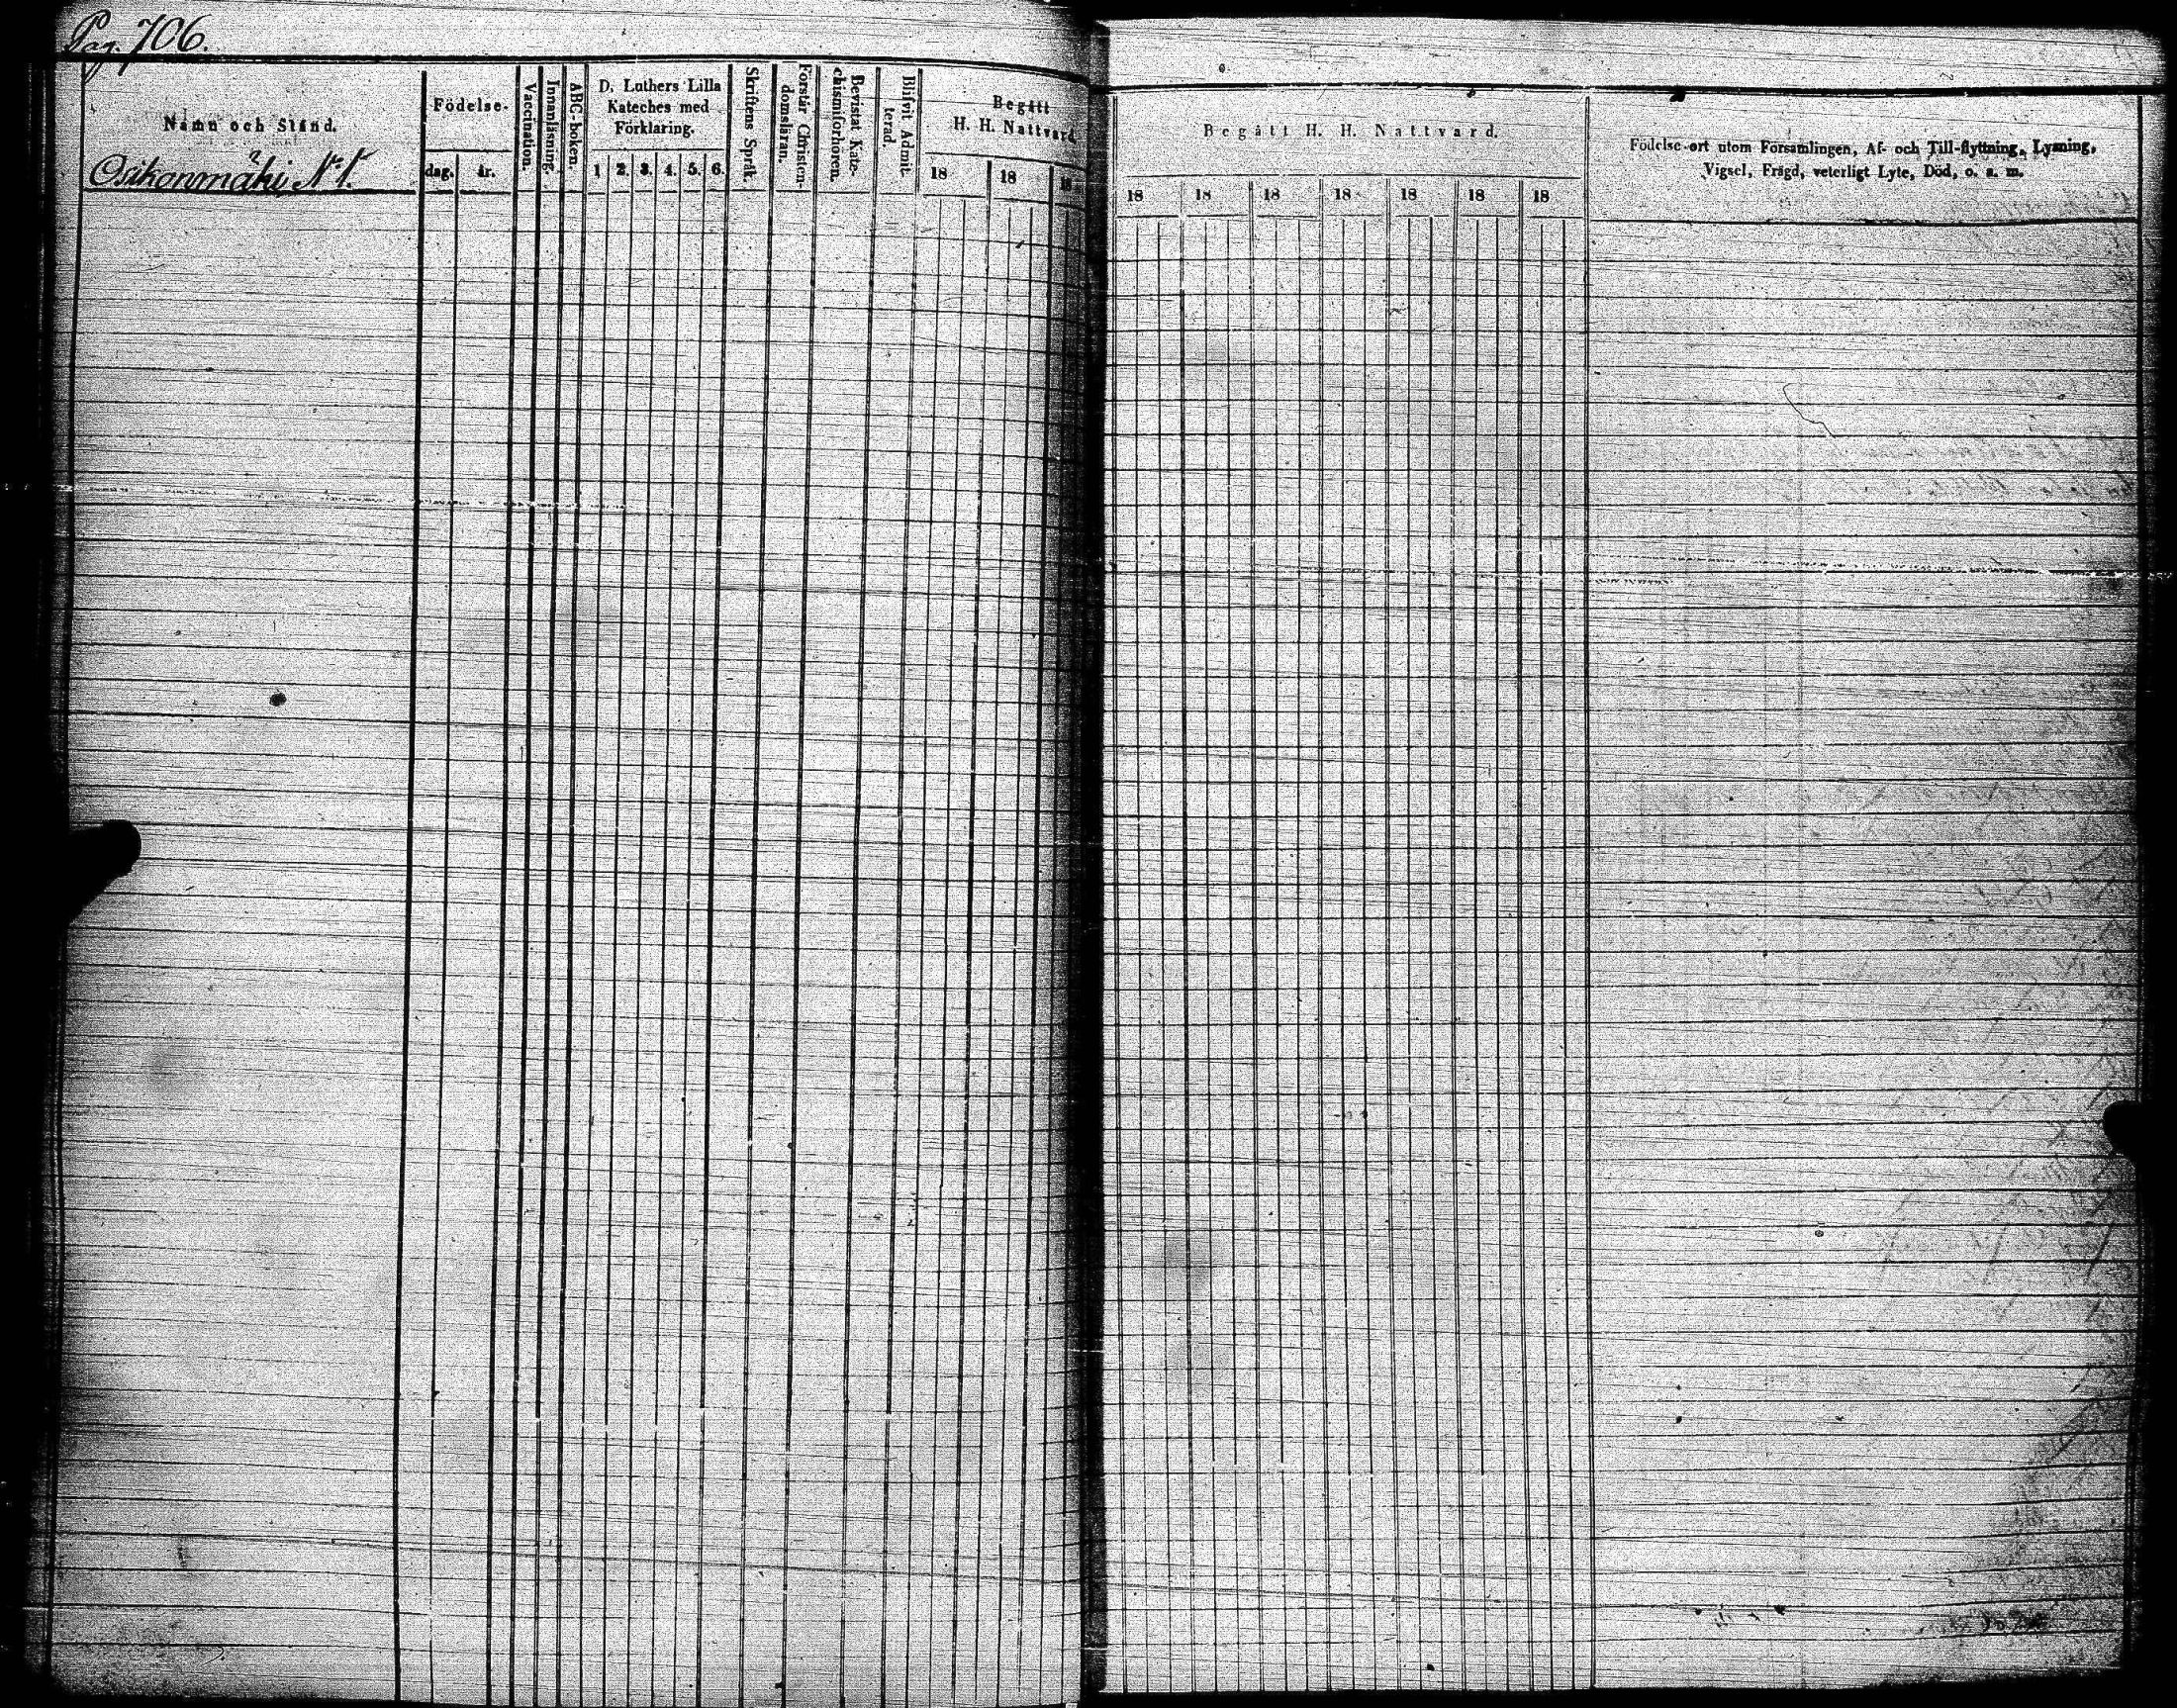 Pag. 706.
Namn och Stånd.
Osikonmäki N:1.
Födelse-
dag.
år.
Vaccination.
Innanläsning.
ABC-boken.
D. Luthers Lilla
Kateches med
Förklaring.
1 2. 3. 4. 5. 6.
Skriftens Språk.
Förstår Christen-
domsläran.
Bevistat Kate-
chismiförhören.
Blifvit Admit-
terad.
Begått
H. H. Nattvard.
18 18 18
Begått H. H. Nattvard.
18 18 18 18 18 18 18
Födelse-ort utom Församlingen, Af- och Till-flyttning, Lysning,
Vigsel, Frägd, veterligt Lyte, Död, o. s. m.